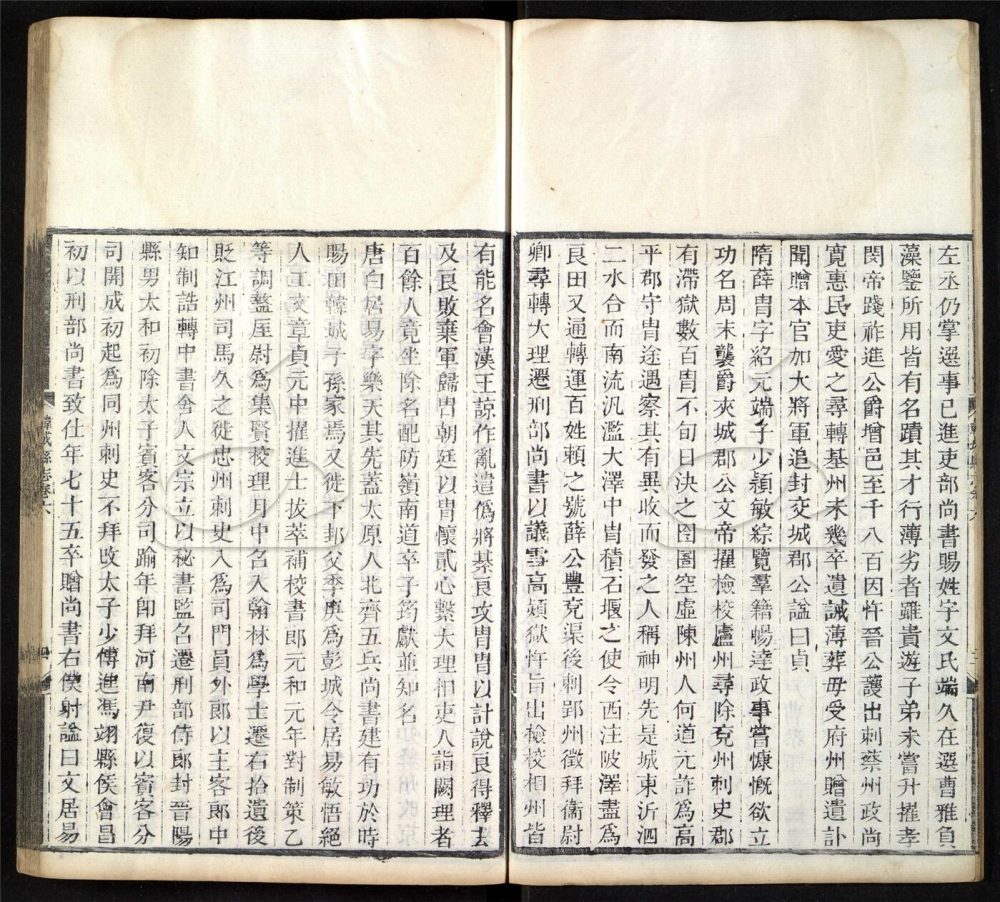 左丞仍掌選事已進吏部尚書賜姓宇文氏端久在選曹雅負
藻鑒所用皆有名蹟其才行薄劣者雖貴遊子弟未嘗升擢孝
閔帝踐祚進公爵增邑至千八百因忤晉公護出刺蔡州政尚
寬惠民吏愛之尋轉基州未幾卒遺誡薄葬毋受府州贈遺訃
聞贈本官加大將軍追封交城郡公諡曰貞
隋薛胄字紹元端子少穎敏綜覽羣籍暢達政事嘗慷慨欲立
功名周末襲爵夾城郡公文帝擢檢校廬州尋除兗州刺史郡
有滯獄數百胄不旬日決之囹圄空虛陳州人何道元詐為高
平郡守胄途遇察其有異收而發之人稱神明先是城東沂泗
二水合而南流汎濫大澤中胄積石堰之使令西注陂澤盡為
良田又通轉運百姓賴之號薛公豐兗渠後刺郢州徵拜衞尉
卿尋轉大理遷刑部尚書以議雪高熲獄忤旨出檢校相州皆
有能名會漢王諒作亂遣僞將綦良攻胄胄以計說良得釋去
及良敗棄軍歸胄朝廷以胄懷貳心繫大理相吏人詣闕理者
百餘人竟坐除名配防嶺南道卒子筠獻並知名
唐白居易字樂天其先蓋太原人北齊五兵尚書建有功於時
賜田韓城子孫家焉又徙下邽父季庚為彭城令居易敏悟絕
人工文章貞元中擢進士拔萃補校書郎元和元年對制策乙
等調盩厔尉為集賢校理月中名入翰林為學士遷右拾遺後
貶江州司馬久之徙忠州刺史入為司門員外郎以主客郎中
知制誥轉中書舍人文宗立以秘書監名遷刑部侍郎封晉陽
縣男太和初除太子賓客分司踰年卽拜河南尹復以賓客分
司開成初起為同州刺史不拜改太子少傅進馮翊縣侯會昌
初以刑部尚書致仕年七十五卒贈尚書右僕射諡曰文居易
韓城縣志卷六